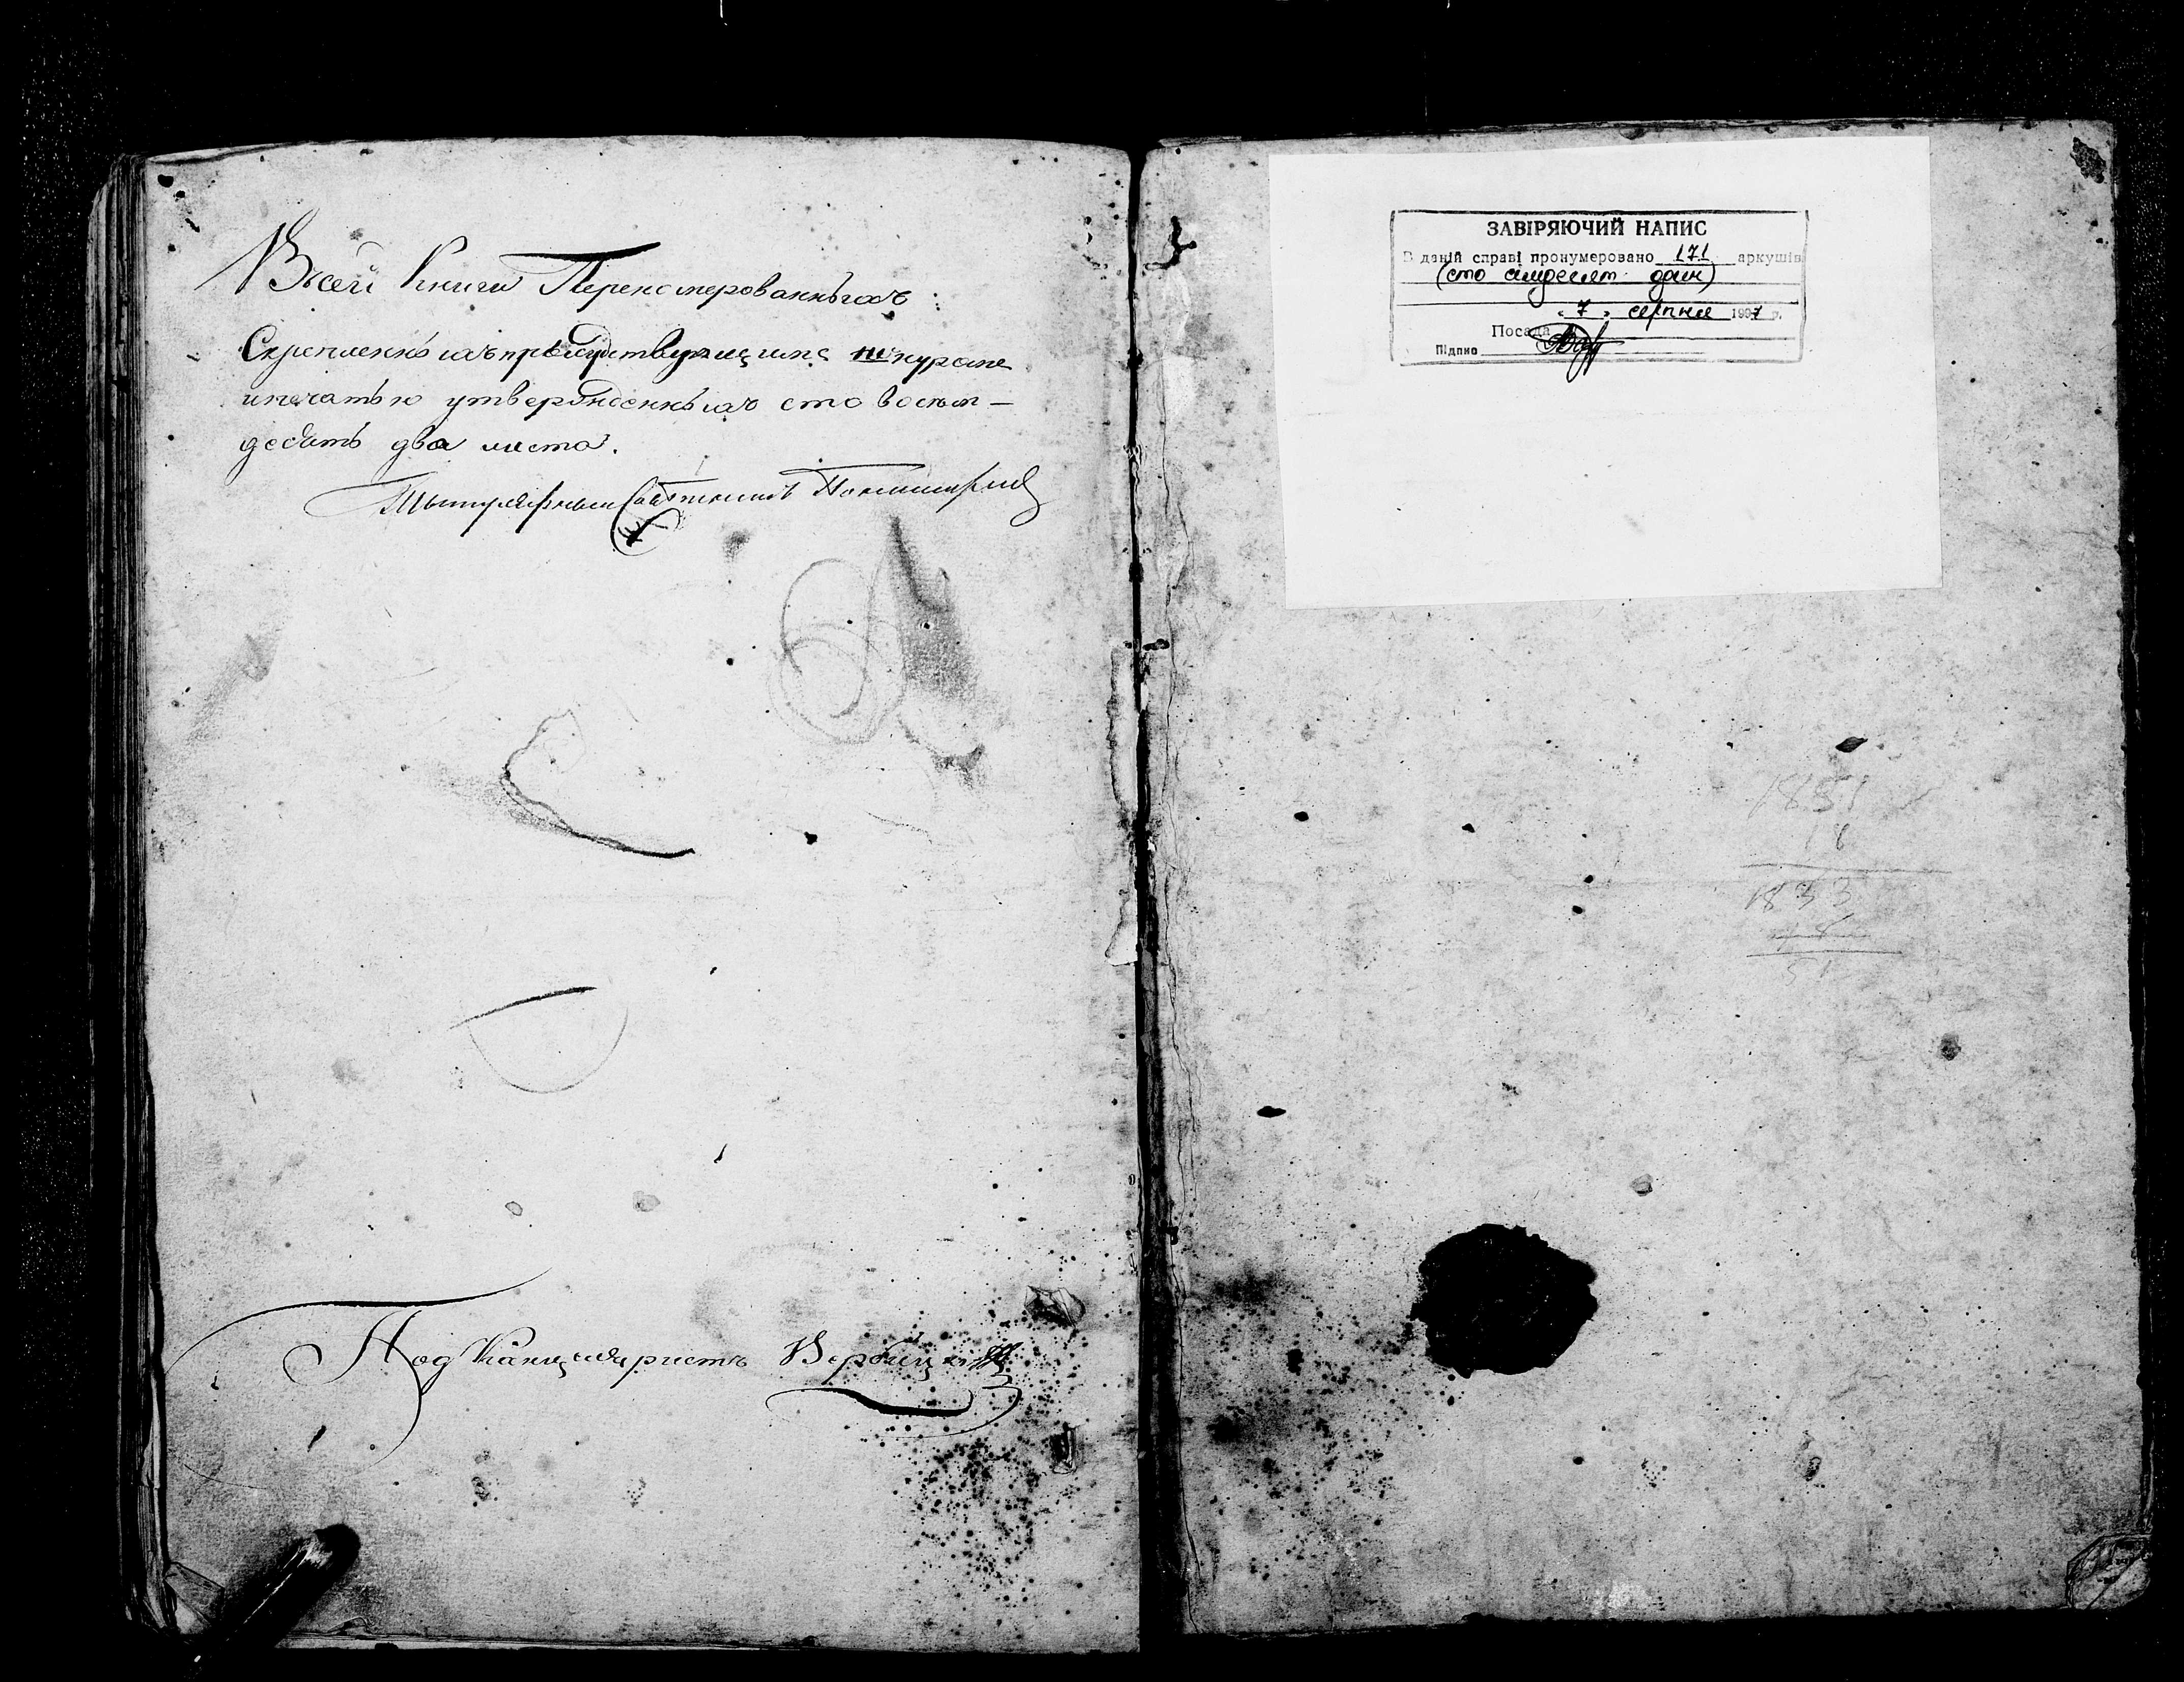 Всей Книги Переномерованныхъ
Скрепленныхъ присудствующимъ шнуромъ
ипечатью утвержденныхъ сто восем-
десятъ два листа.
Титулярный Советникъ
Под Канцеляристъ Вербицкий
ЗАВІРЯЮЧИЙ НАПИС
В даній справі пронумеровано 171 аркушів
(сто сімдесят один)
« 7 » серпня 1997 р.
Посада
Підпис
1851
18
1833